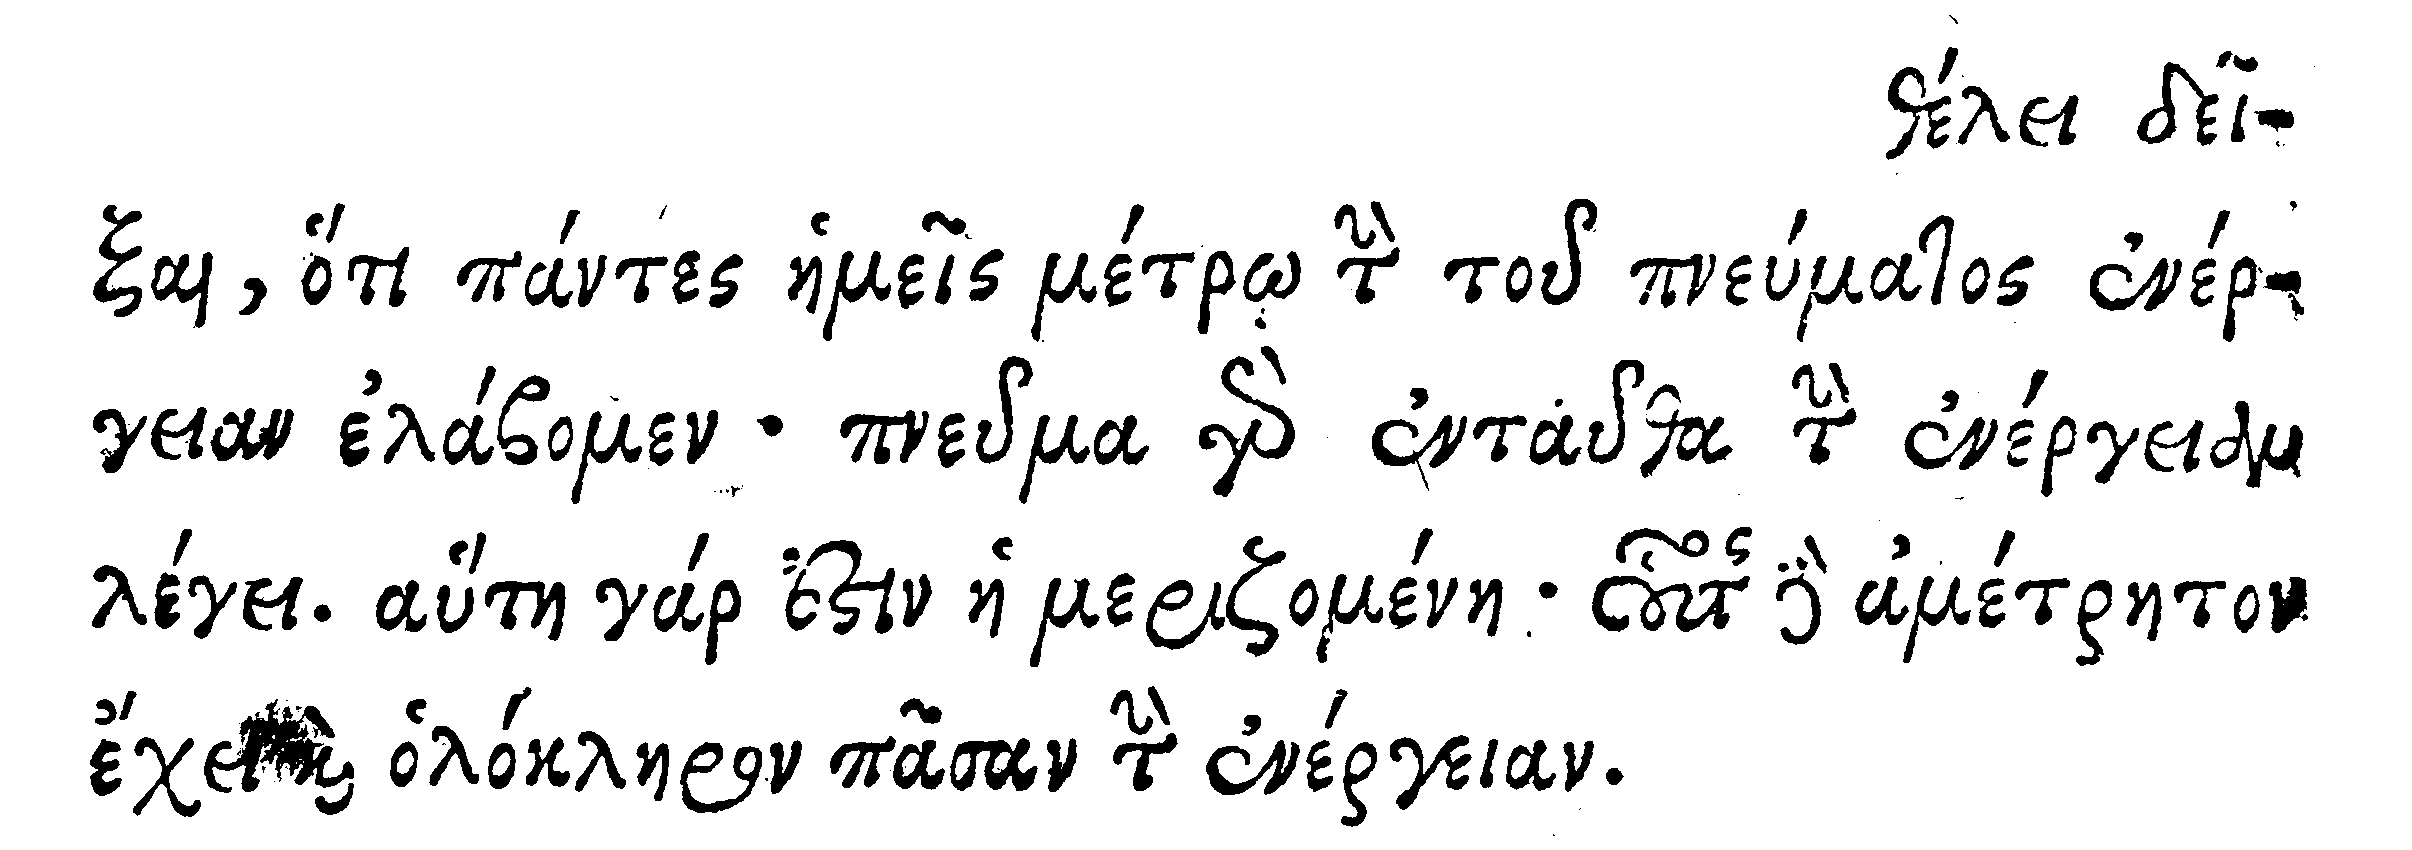 θέλει δεῖ-
ξαι, ὅτι πάντες ἡμεῖς μέτρῳ τὴν τοῦ πνεύματος ἐνέρ-
γειαν ἐλάβομεν· πνεῦμα γὰρ ἐνταῦθα τὴν ἐνέργειαν
λέγει. αὕτη γάρ ἐστιν ἡ μεριζομένη· οὗτος δὲ ἀμέτρητον
ἔχει καὶ ὁλόκληρον πᾶσαν τὴν ἐνέργειαν.